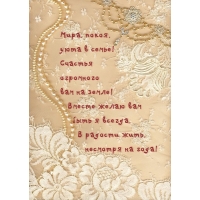 Мира, покоя,
уюта в семье!
Счастья
огромного
вам на земле!
Вместе желаю вам
быть я всегда,
В радости жить,
несмотря на года!